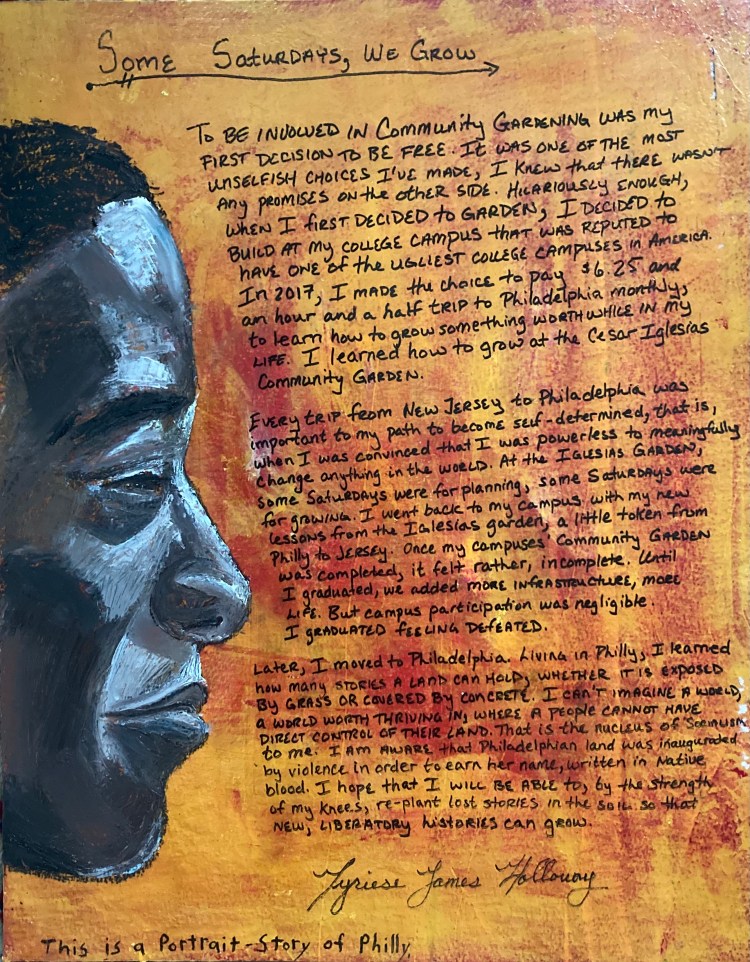 Some Saturdays, We Grow
To be involved in Community Gardening was my
first decision to be free. It was one of the most
unselfish choices I've made, I knew that there wasn't
any promises on the other side. Hilariously enough,
when I first decided to garden, I decided to
build at my college campus that was reputed to
have one of the ugliest college campuses in America.
In 2017, I made the choice to pay $6.25 and
an hour and a half trip to Philadelphia monthly,
to learn how to grow something worthwhile in my
life. I learned how to grow at the Cesar Iglesias
Community Garden.
Every trip from New Jersey to Philadelphia was
important to my path to become self-determined, that is,
when I was convinced that I was powerless to meaningfully
change anything in the world. At the Iglesias Garden,
some Saturdays were for planning, some Saturdays were
for growing. I went back to my campus with my new
lessons from the Iglesias garden, a little token from
Philly to Jersey. Once my campuses' Community Garden
was completed, it felt rather, incomplete. Until
I graduated, we added more infrastructure, more
life. But campus participation was negligible.
I graduated feeling defeated.
Later, I moved to Philadelphia. Living in Philly, I learned
how many stories a land can hold, whether it is exposed
by grass or covered by concrete. I can't imagine a world,
a world worth thriving in, where a people cannot have
direct control of their land. That is the nucleus of Socialism
to me. I am aware that Philadelphian land was inaugurated
by violence in order to earn her name, written in Native
blood. I hope that I will be able to, by the strength
of my knees, re-plant lost stories in the soil so that
new, liberatory histories can grow.
Tyriese James Holloway
This is a Portrait-Story of Philly